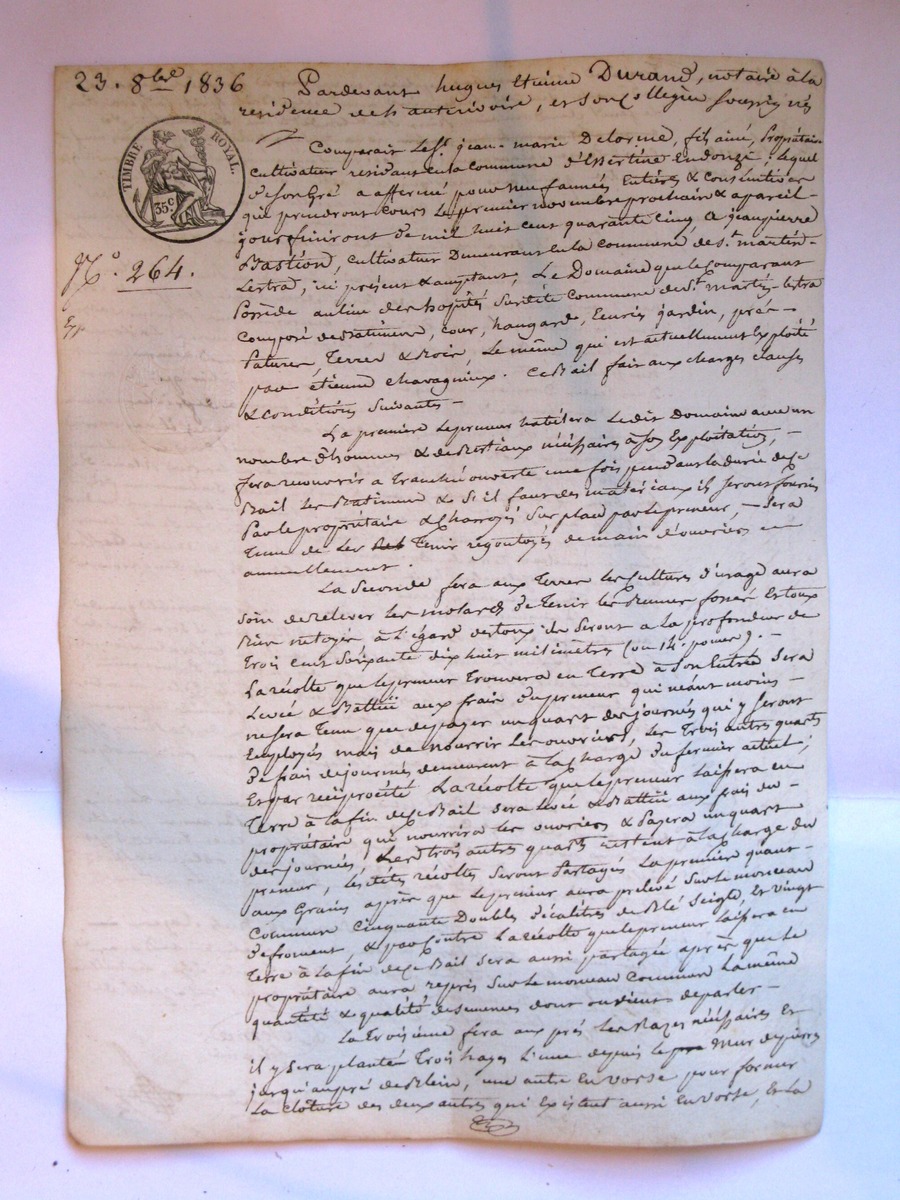 23. 8bre 1836
Pardevant hugues Etienne Durand, notaire à la
residence de st hautrivoire, et son Collègue soussignés
TIMBRE ROYAL.
35 c
N.o 264.
Comparait le Sr. jean-marie Delorme, fils ainé, Propriétaire
Cultivateur residant en la commune d'Essertine Endonzi; lequel
de son gré a affermé pour neuf années Entières & consécutives
qui prendront cours le premier novembre prochain & a pareil-
jour finiront de mil huit cent quarante cinq, a jean pierre
Bastion, cultivateur Demeurant en la commune de St. martin-
Lestra, ici présent & acceptant, Le Domaine que le Comparant
Possède au lieu des hopités Susdite Commune de St martin-lestra
Composé de Batiments, cour, hangards, Ecuries jardin, pré-
Patures, Terres & Bois, Le même qui est actuellement Exploité
par étienne Chavagnieux. Ce Bail fait aux charges clauses
& conditions Suivantes-
La première le preneur habitera le dit Domaine avec un
nombre d'hommes & de Bestiaux nécéssaires à son Exploitation,-
fera recouvrir a tranchée ouverte une fois pendant la durée de ce
Bail les Batiments & Si il faut des matériaux ils seront fournis
Par le propriétaire & Charroyés Sur place par le preneur, - sera
Tenu de les Tenir régoutoyés de main d'ouvriers
annuellement.
La Seconde fera aux Terres les Cultures d'usage aura
Soin de relever les motards de Tenir les fossés Et tous
nétoyés à l'égard des toux ils Seront a la profondeur de
Trois cent Soixante dix huit milimètres (ou 14. pouces).-
La récolte que le preneur Trouvera en Terre à Son Entrée sera
Levée & Battue aux frais du preneur qui néant moins-
ne sera Tenu que de payer un quart des journés qui y seront
Employés mais de nourrir Les ouvriers, Les Trois autres quarts
de frais de journés demeurent à la charge du fermier actuel;
Et par réciprocité La récolte que le preneur laissera en
Terre à la fin de ce Bail sera levée & Battue aux frais du-
propriétaire qui nourrira les ouvriers & Payera un quart
des journés, Les trois autres quarts restent à la charge du
preneur, Lesdites récoltes seront Partagés La première quant-
aux Grains après que le preneur aura prélevé Sur le monceau
Commun Cinquante Doubles décalitres de Blé Seigle, Et vingt
de froment, & par Contre La récolte que le preneur laissera en
Terre à la fin de ce Bail sera aussi partagée après que le
propriétaire aura repris Sur le monceau Commun La même
quantité & qualité de semences dont on vient de parler-
La Troisième fera aux prés les Razes nécéssaires Et
il y sera planté Trois hayes L'une depuis le Mur de pierres
jusqu'au pré de Blein, une autre En vorse pour former
La cloture des deux autres qui Existent aussi En vorse, Et la